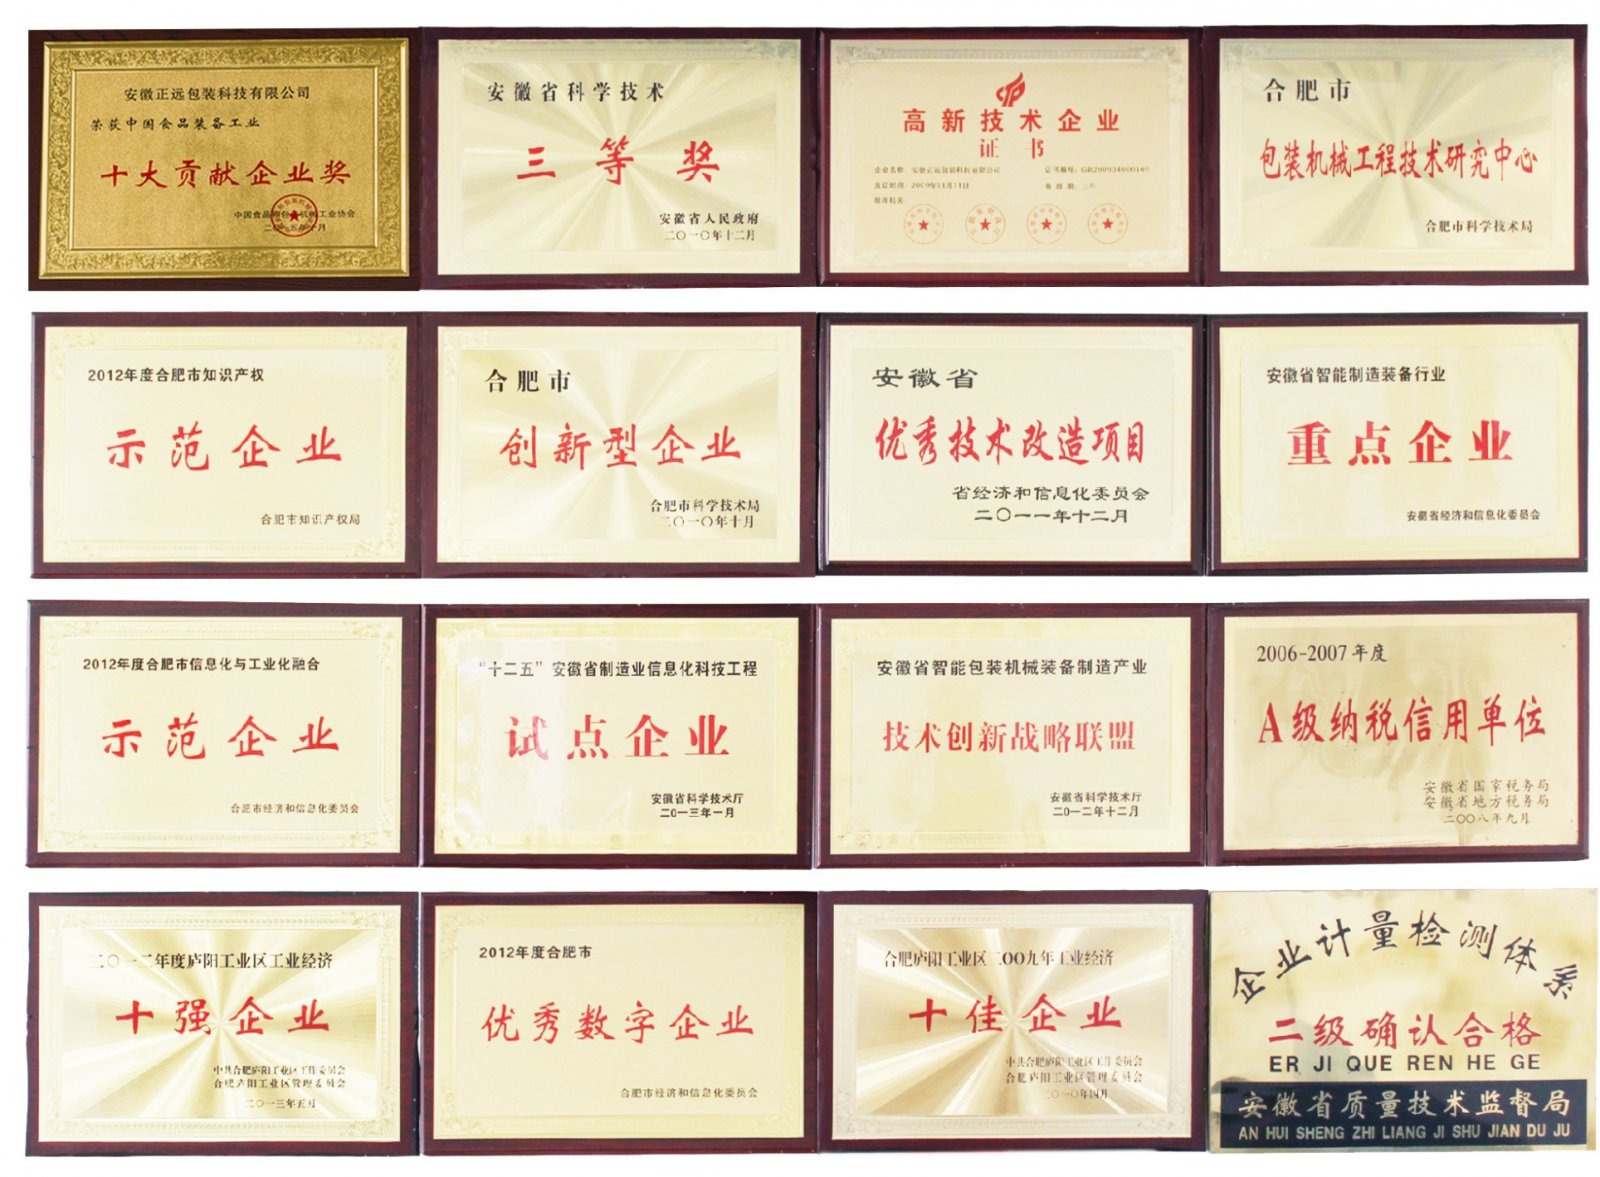 安徽正远包装科技有限公司
荣获中国食品装备工业
十大贡献企业奖
中国食品和包装机械工业协会
安徽省科学技术
三等奖
安徽省人民政府
二〇一〇年十二月
高新技术企业
证书
企业名称：安徽正远包装科技有限公司
发证时间：2009年11月11日
批准机关：
有效期：三年
合肥市
包装机械工程技术研究中心
合肥市科学技术局
2012年度合肥市知识产权
示范企业
合肥市知识产权局
合肥市
创新型企业
合肥市科学技术局
二〇一〇年十月
安徽省
优秀技术改造项目
省经济和信息化委员会
二〇一一年十二月
安徽省智能制造装备行业
重点企业
安徽省经济和信息化委员会
2012年度合肥市信息化与工业化融合
示范企业
合肥市经济和信息化委员会
“十二五”安徽省制造业信息化科技工程
试点企业
安徽省科学技术厅
二〇一三年一月
安徽省智能包装机械装备制造产业
技术创新战略联盟
安徽省科学技术厅
二〇一二年十二月
2006-2007年度
A级纳税信用单位
安徽省国家税务局
安徽省地方税务局
二〇〇八年九月
二〇一二年度庐阳工业区工业经济
十强企业
中共合肥庐阳工业区工作委员会
合肥庐阳工业区管理委员会
二〇一三年五月
2012年度合肥市
优秀数字企业
合肥市经济和信息化委员会
合肥庐阳工业区二〇〇九年工业经济
十佳企业
中共合肥庐阳工业区工作委员会
合肥庐阳工业区管理委员会
二〇一〇年四月
企业计量检测体系
二级确认合格
ER JI QUE REN HE GE
安徽省质量技术监督局
AN HUI SHENG ZHI LIANG JI SHU JIAN DU JU